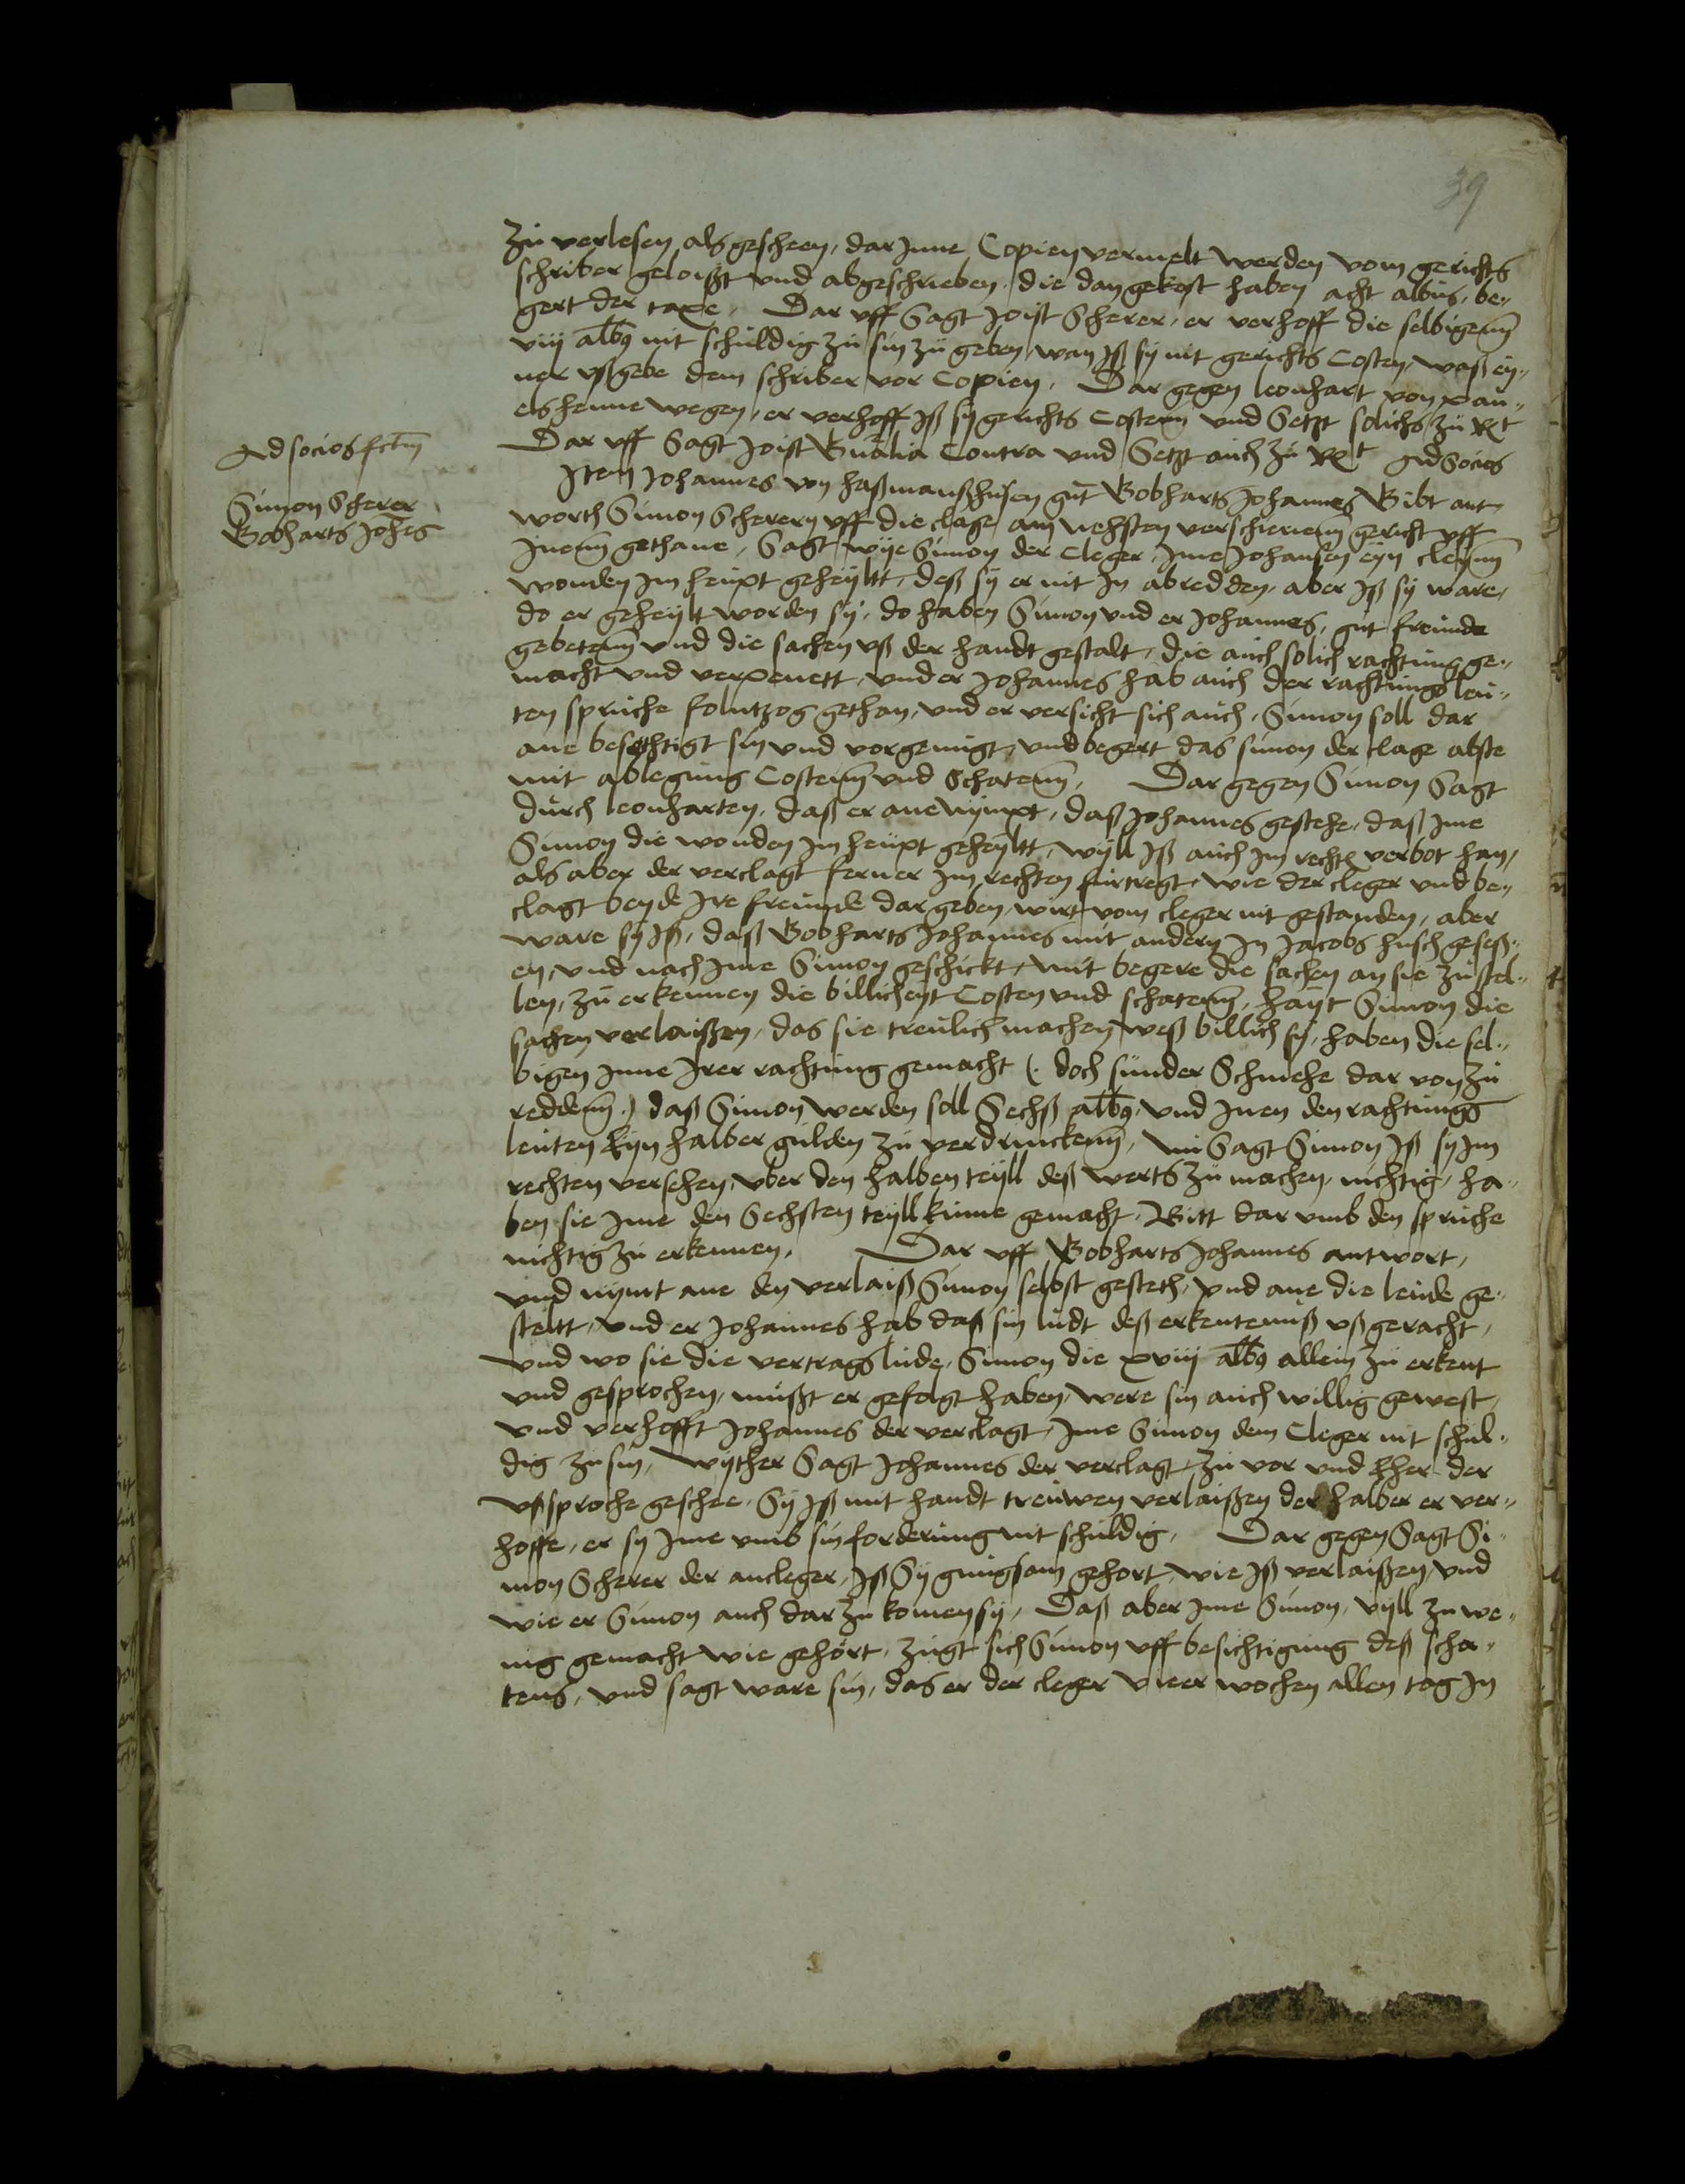 39
zu verlesen als gescheen, dar Inne Copien vermelt werden vom gerichts
schriber geloißt und abgeschrieben, die dan gekost haben acht albus, be„
gert der taxe, Dar uff Sagt Joist Scherer, er verhoff die selbigenn
viij albus nit schuldig zu sin zu geben, wan Iß sij nit gerichts Costen, waß ey„
ner ußgebe dem schriber vor Copien, Dar gegen leonhart von
els henne wegen, er verhoff Iß sij gerichts Costenn und Setzt solichs zu Rt
Dar uff Sagt Joist Contra und Setzt auch zu Rt ad Socios
Ad socios fctm
Simon Scherer
Bobharts Johes
Item Johannes von haßmanßhusen gnt Bobharts Johannes Gibt ant„
worth Simon Scherern uff die clage am nehsten verschienenn gericht uff
Inenn gethane, Sagt wije Simon der Cleger, Ime Johansen eyn cleynn
wonden Im heupt geheyltt, deß sij er nit In abredden, aber Iß sij ware,
do er geheylt worden sij, do haben Simon und er Johannes, gut freunde
gebetenn und die sachen uß der handt gestalt, die auch solich rachtung ge„
macht und verpenett, und er Johannes hab auch der rachtungs leu„
ten spruche folntzog gethan, und er versicht sich auch, Simon soll dar
ane besechtigt sin und vorgenugt, und begert das simon der clage abste
mit ablegung Costenn und Schatenn, Dar gegen Simon Sagt
durch leonharten, daß er ane nijmpt, daß Johannes gestehe, daß Ime
Simon die wonden Im heupt geheyltt, wyll Iß auch Im rechten verbot han,
als aber der verclagt ferner Im rechten furtregt, wie der cleger und be„
clagt beyde Ire freunde dar geben, wirt vom cleger nit gestanden, aber
ware sij Iß, daß Bobharts Johannes mit andern In Jacobs husch geseß„
en, und nach Ime Simon geschickt, mit begere die sachen an sie zu stel„
len, zu erkennen die billicheyt Costen und schatenn, hayt Simon die
sachen verlaißen, das sie treulich machen weß billich sij, haben die sel„
bigen Inne Irer rachtung gemacht (: doch sunder Schmehe dar von zu
reddenn :) daß Simon werden soll Sechß albus, und Inen den rachtungs
leuten Eyn halber gulden zu verdrinckenn, nu Sagt Simon Iß sij Im
rechten versehen, uber den halben teyll deß werts zu machen, nichtig, ha„
ben sie Ime den Sechsten teyll kume gemacht, Bitt dar umb den spruche
nichtig zu erkennen, Dar uff Bobharts Johannes antwort,
und nijmt ane den verlaiß Simon selbst gesteth, und ane die leude ge„
steltt, und er Johannes hab daß sin ludt deß erkentenuß uß geracht,
und wo sie die vertrags lude, Simon die xviij albus allein zu erkent
und gesprochen, mußt er gefolgt haben, were sin auch willig gewest,
und verhofft Johannes der verclagt, Ime Simon dem Cleger nit schul„
dig zu sin, wyther Sagt Johannes der verclagt, zu vor und Eher der
ußsproche geschee, Sij Iß mit handt treuwen verlaißen der halber er ver„
hoffe, er sy Ime umb sin forderung nit schuldig, Dar gegen Sagt Si„
mon Scherer der ancleger, Iß Sij gnugsam gehort, wie Iß verlaißen, und
wie er Simon auch dar zu komen sij, Daß aber Ime Simon, vyll zu we„
nig gemacht wie gehort, zugt sich Simon uff besichtigung deß scha„
tens, und sagt ware sin, das er der cleger vieer wochen allen tag In